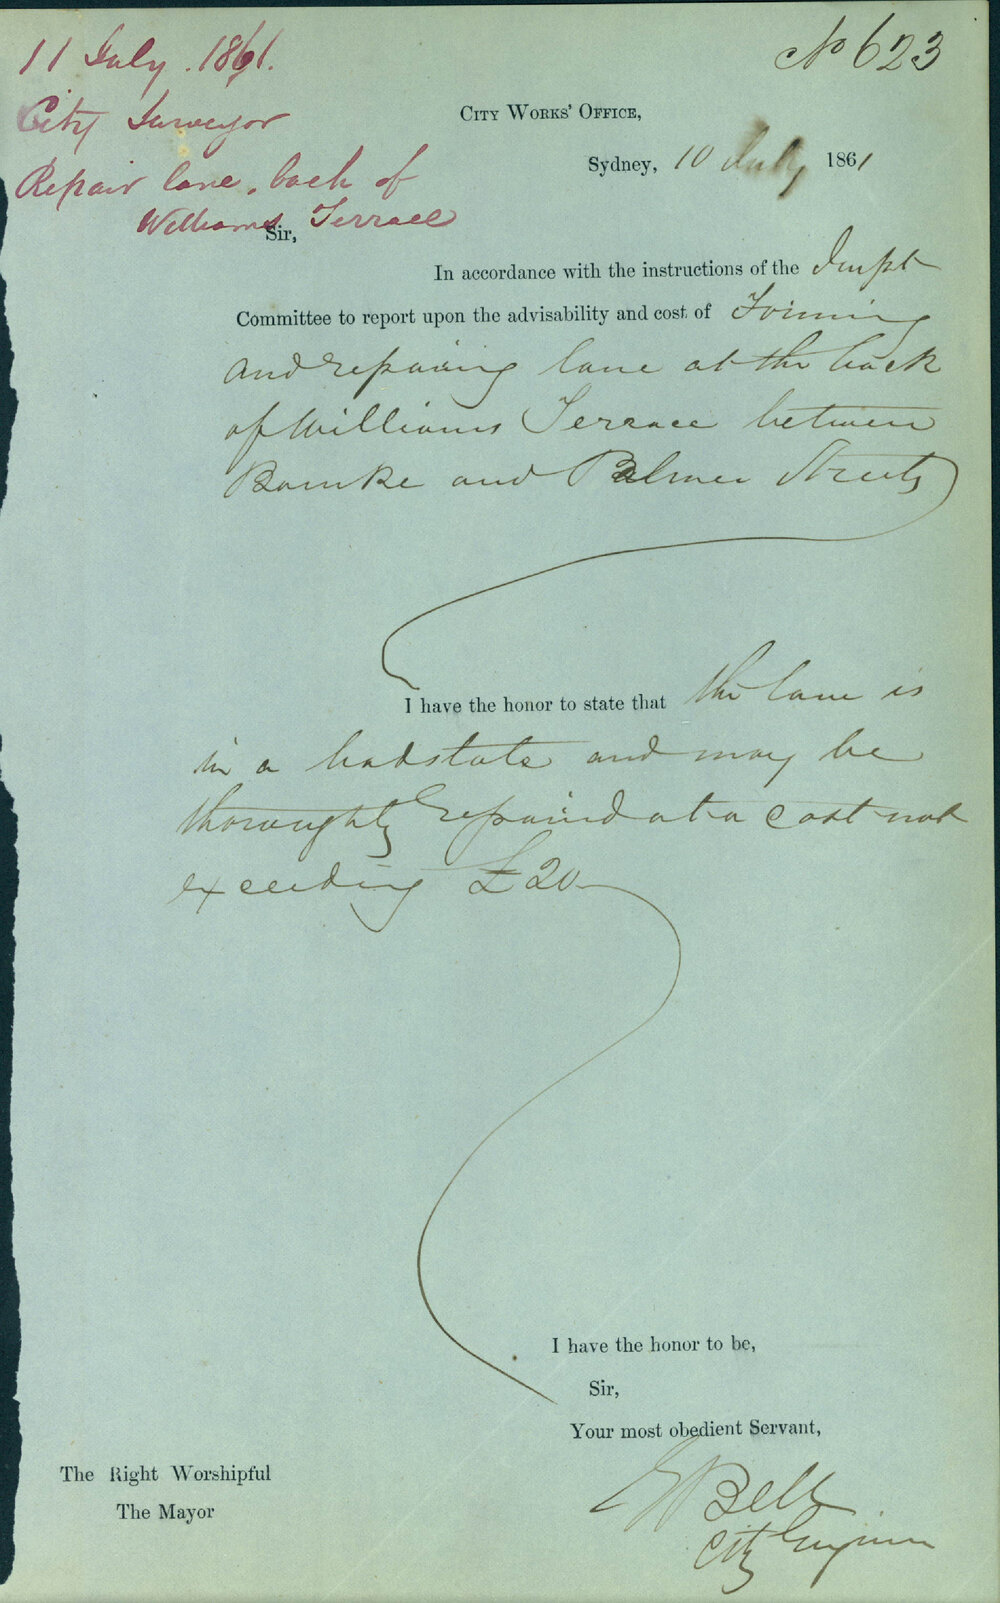 11 July. 1861.
City Surveyor
Repair lane, back of
Williams Terrace
No 623
City Works' Office,
Sydney, 10 July 1861
Sir,
In accordance with the instructions of the Impt
Committee to report upon the advisability and cost of Forming
and repairing lane at the back
of Williams Terrace between
Bourke and Palmer Streets
I have the honor to state that the lane is
in a bad state and may be
thoroughly repaired at a cost not
exceeding £20
I have the honor to be,
Sir,
Your most obedient Servant,
E Bell
City Engineer
The Right Worshipful
The Mayor